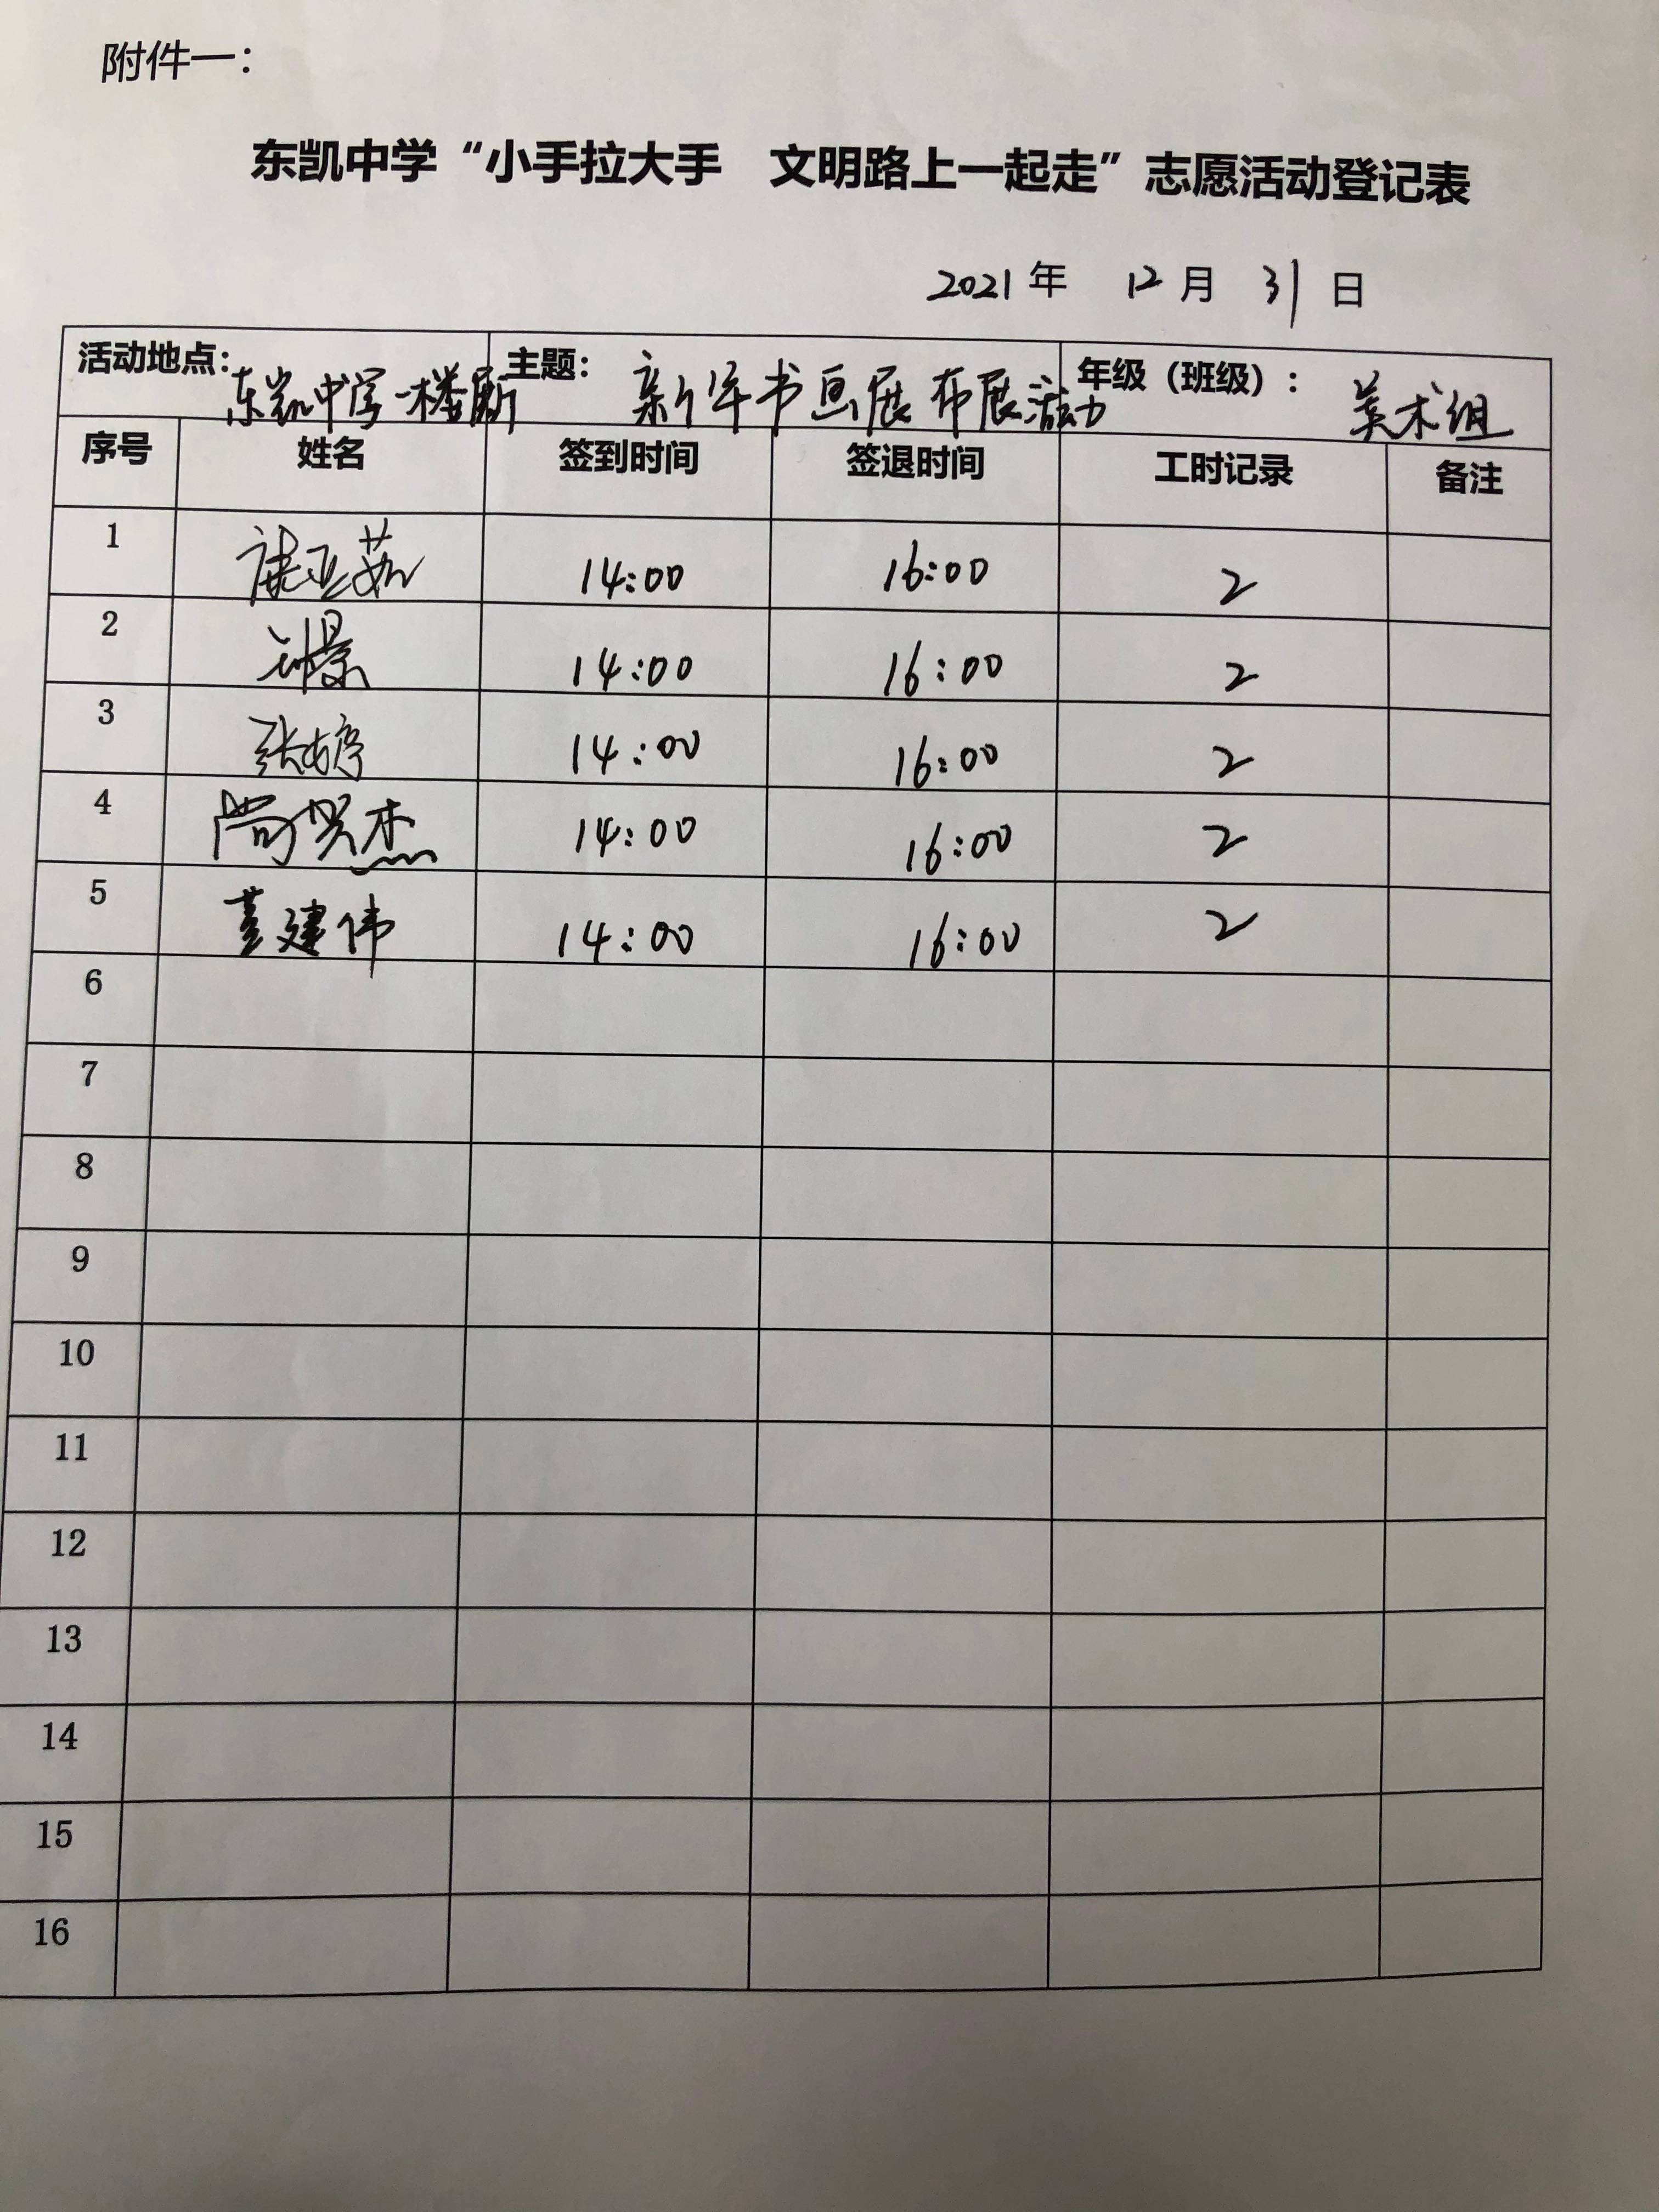 附件一：
东凯中学“小手拉大手 文明路上一起走”志愿活动登记表
2021年 12月 31日
活动地点：东凯中学一楼厅 主题：新年书画展布展活动 年级（班级）：美术组
序号 姓名 签到时间 签退时间 工时记录 备注
1 14:00 16:00 2
2 14:00 16:00 2
3 张婷 14:00 16:00 2
4 尚贤杰 14:00 16:00 2
5 董建伟 14:00 16:00 2
6
7
8
9
10
11
12
13
14
15
16